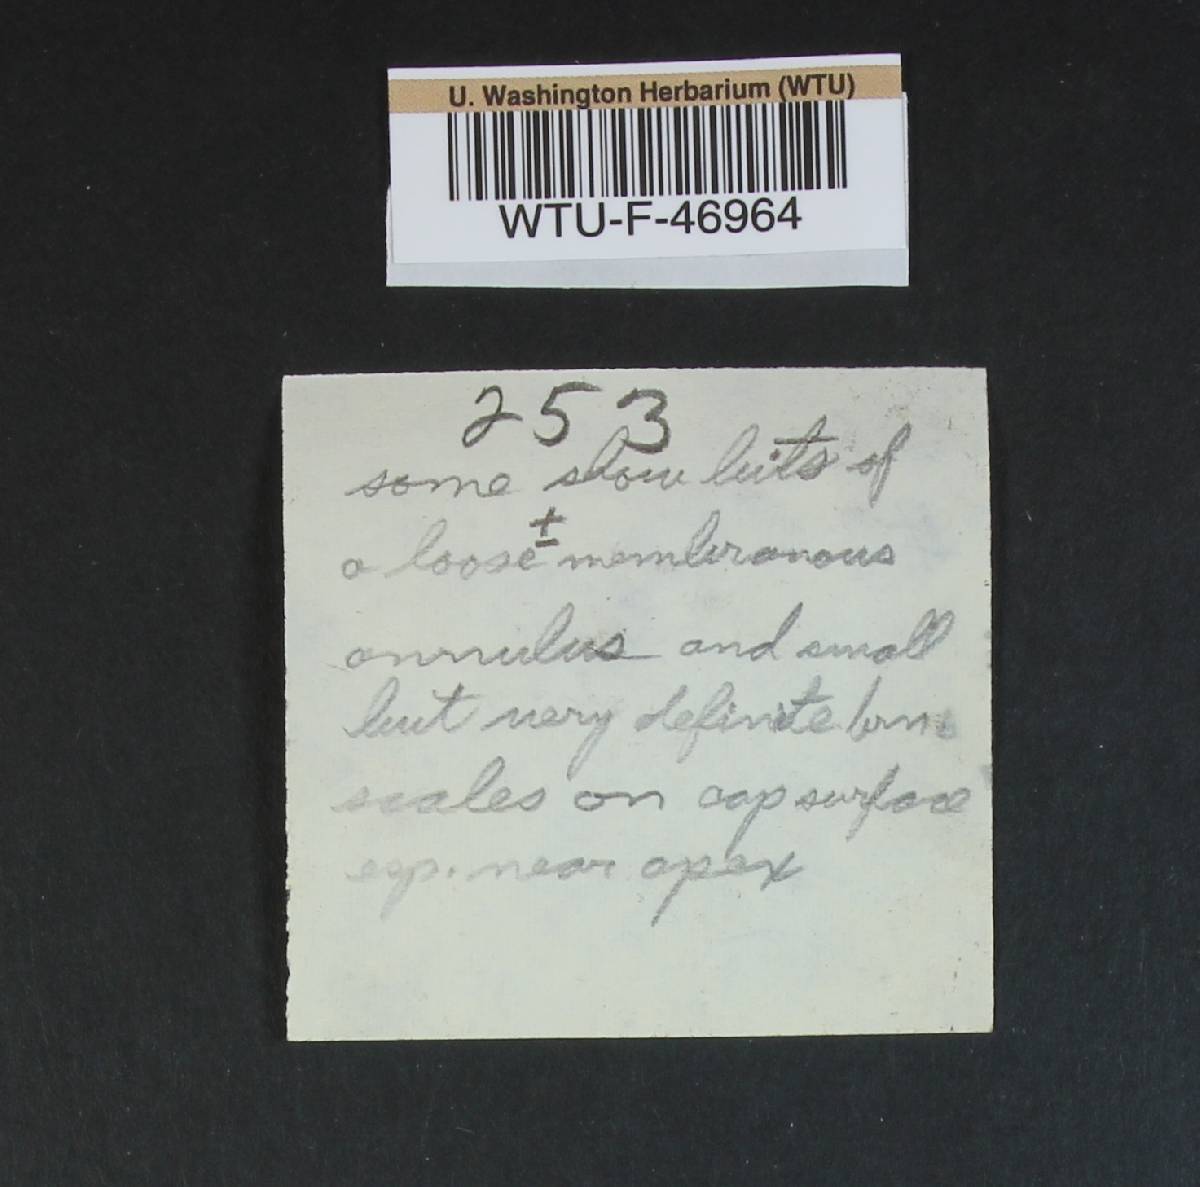 U. Washington Herbarium (WTU)
WTU-F-46964
253
some show bits of
a loose ± membranous
annulus and small
but very definite brn.
scales on cap surface
esp. near apex